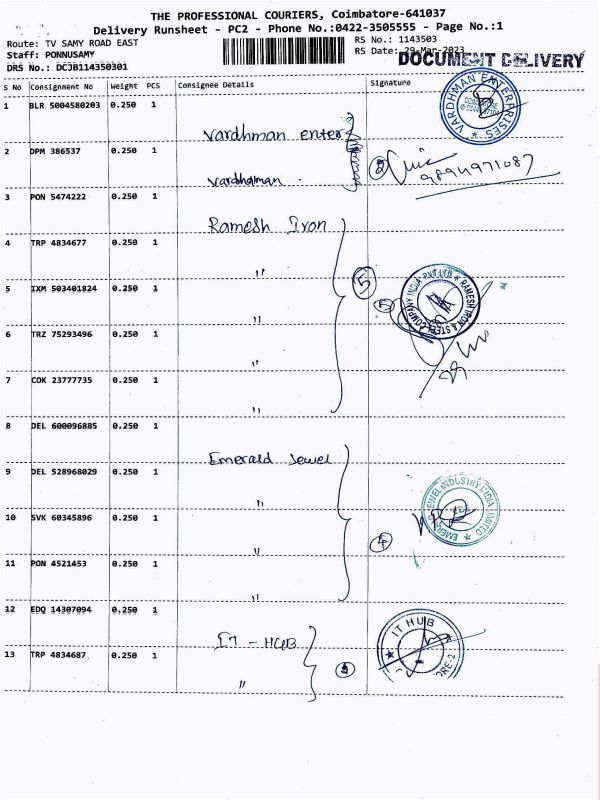 THE PROFESSIONAL COURIERS, Coimbatore-641037
Delivery Runsheet - PC2 - Phone No.:0422-3505555 - Page No.:1
Route: TV SAMY ROAD EAST
Staff: PONNUSAMY
DRS No.: DCJB114350301
RS No.: 1143503
RS Date: 29-Mar-2023
DOCUMENT DELIVERY
S No Consignment No Weight PCS Consignee Details Signature
1 BLR 5004580203 0.250 1
Vardhman enter
VARDHMAN ENTERPRISES
2 DPM 386537 0.250 1
Vardhaman
2
9894971087
3 PON 5474222 0.250 1
Ramesh Iron
4 TRP 4834677 0.250 1
"
5 IXM 503401824 0.250 1
"
5
RAMESH IRON & STEEL COMPANY INDIA PVT LTD
6 TRZ 75293496 0.250 1
"
7 COK 23777735 0.250 1
"
8 DEL 600096885 0.250 1
Emerald Jewel
9 DEL 528968029 0.250 1
"
EMERALD JEWEL INDUSTRY INDIA LIMITED
10 SVK 60345896 0.250 1
"
4
11 PON 4521453 0.250 1
"
12 EDQ 14307094 0.250 1
IT - HUB
IT HUB
13 TRP 4834687 0.250 1
"